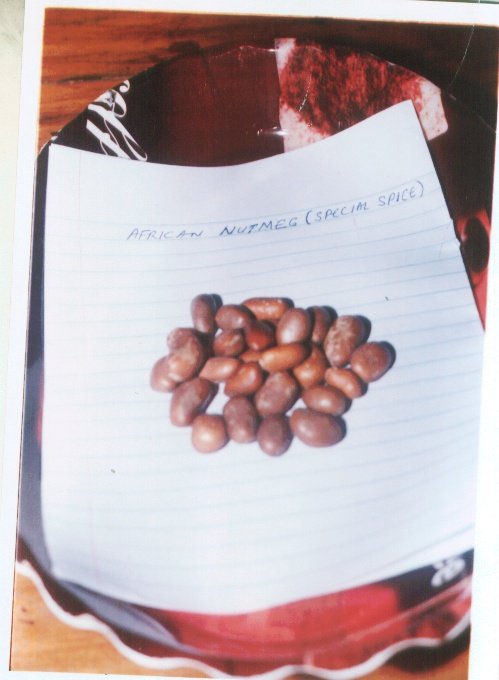 AFRICAN NUTMEG (SPECIAL SPICE)